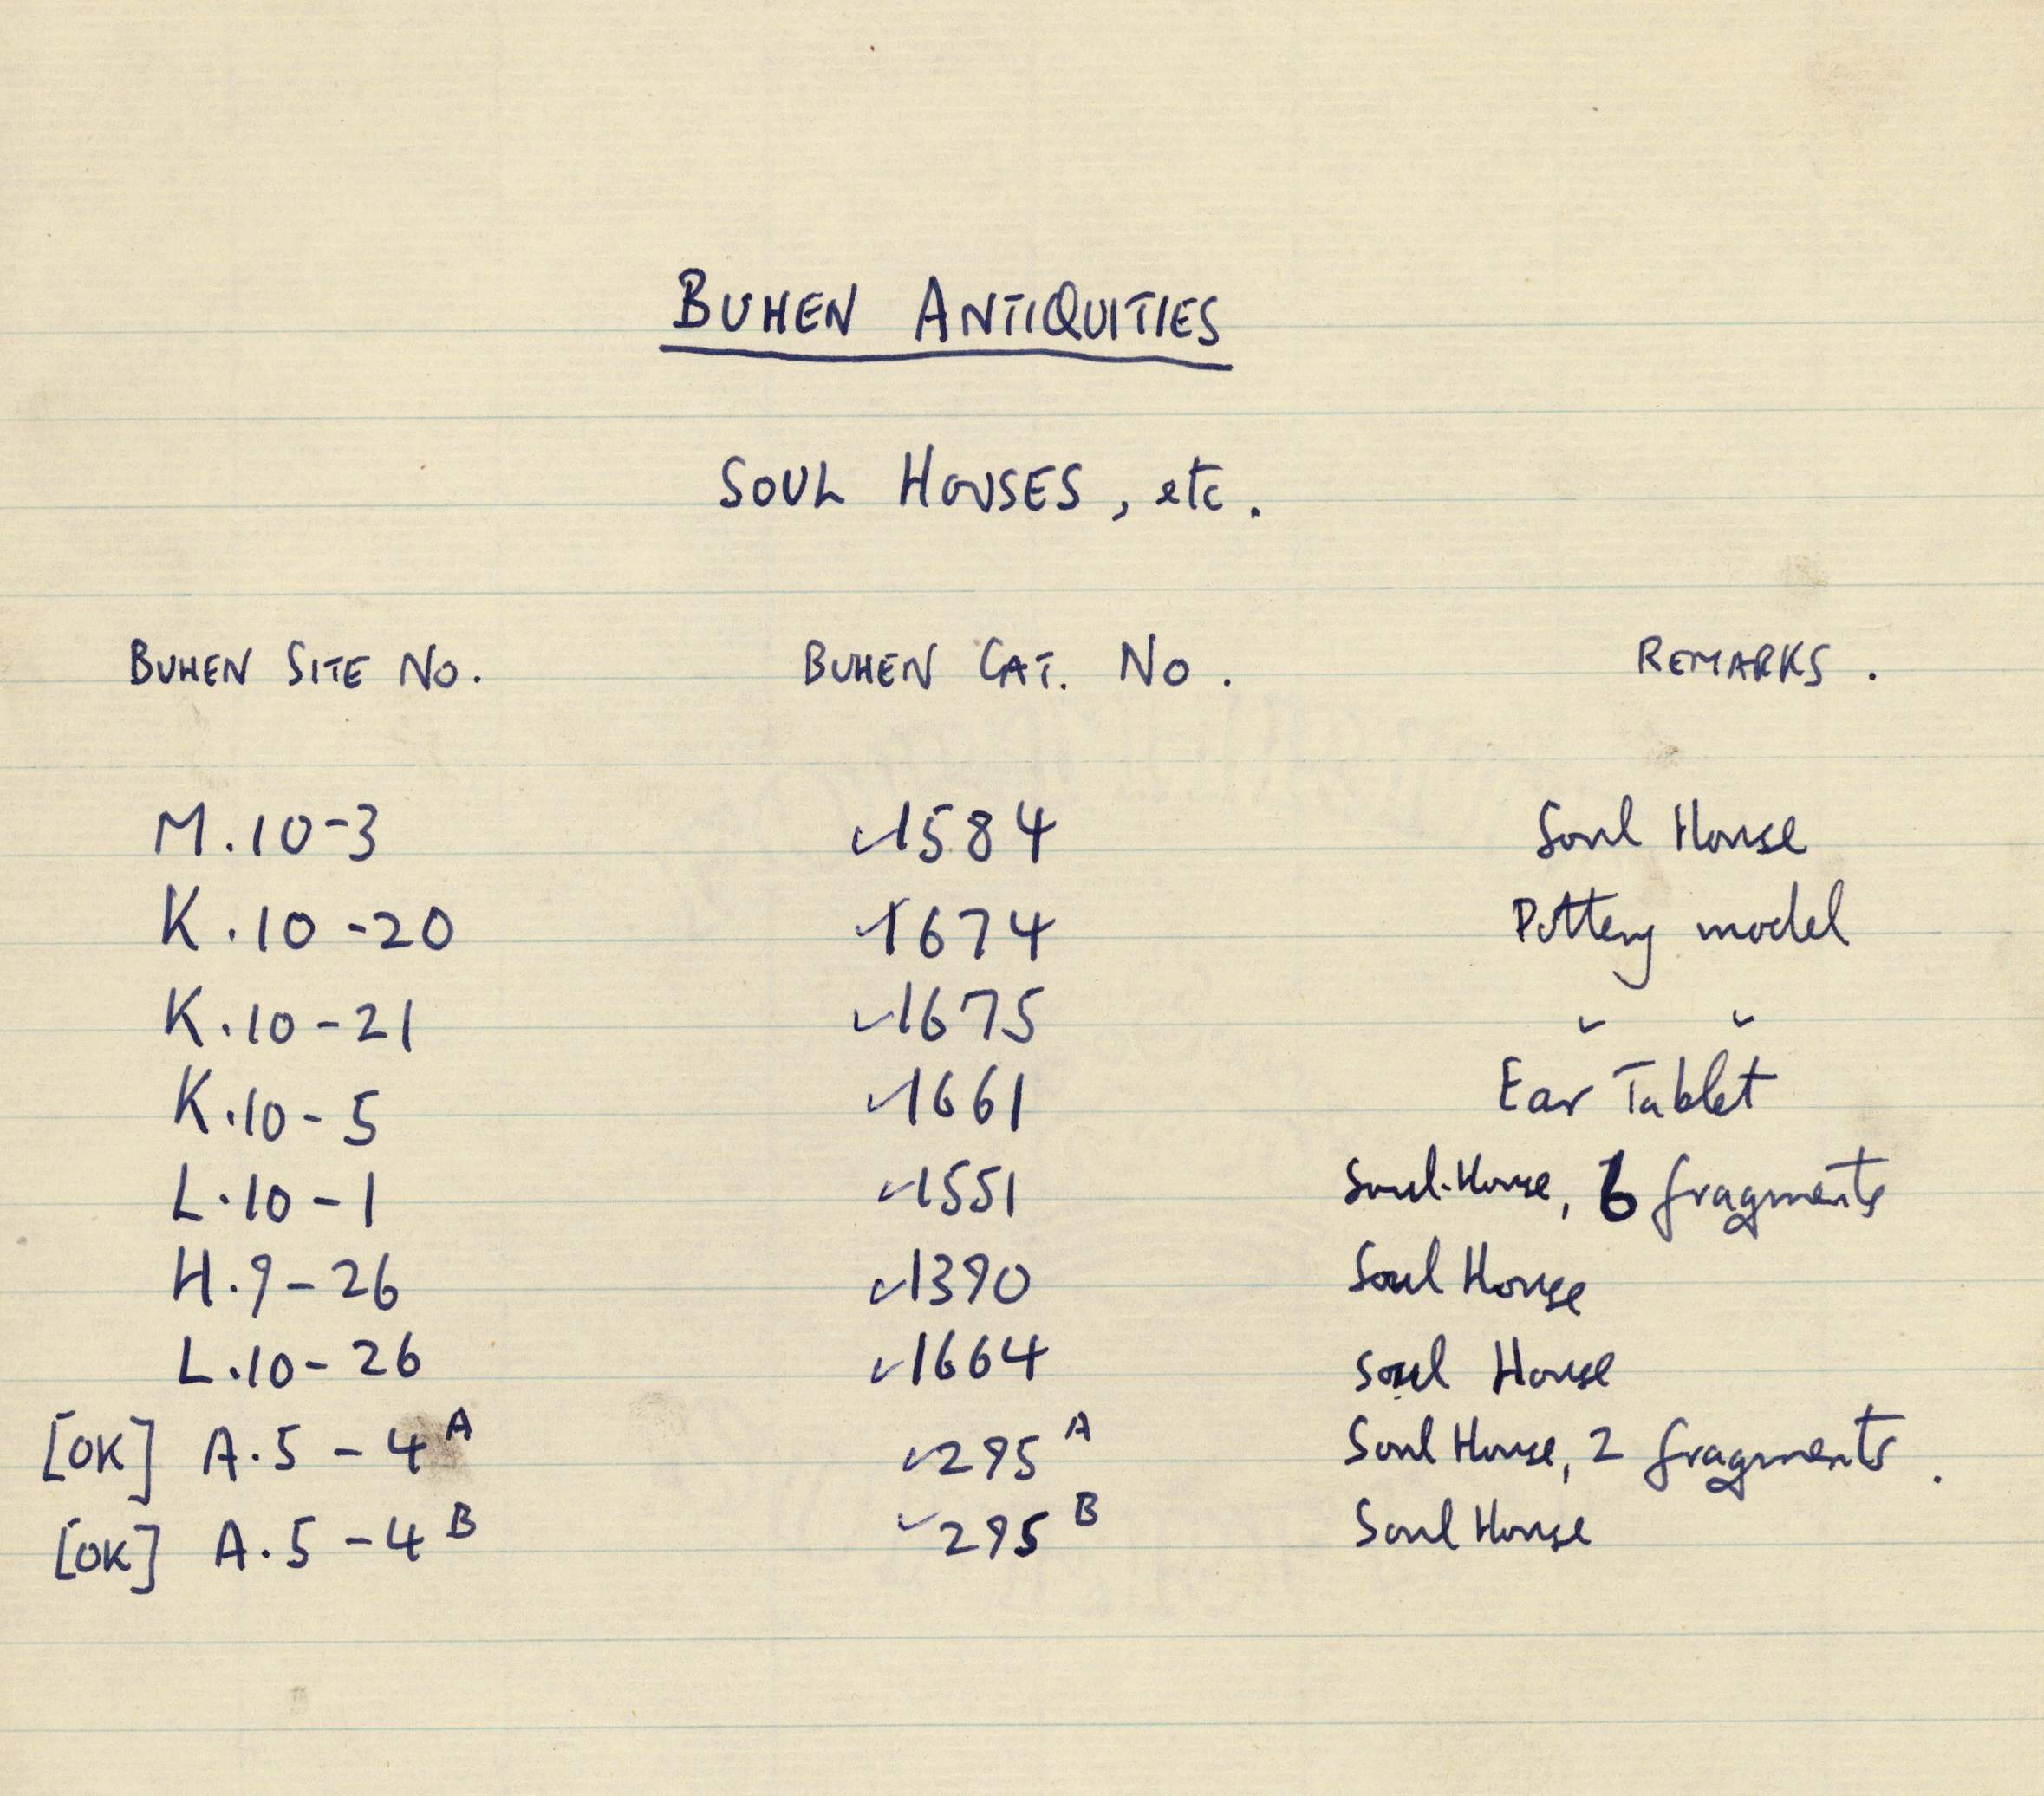 BUHEN ANTIQUITIES
SOUL HOUSES, etc.
BUHEN SITE NO. BUHEN CAT. NO. REMARKS.
M.10-3 ✓1584 Soul House
K.10-20 ✓1674 Pottery model
K.10-21 ✓1675 " "
K.10-5 ✓1661 Ear Tablet
L.10-1 ✓1551 Soul-House, 6 fragments
H.9-26 ✓1390 Soul House
L.10-26 ✓1664 Soul House
[OK] A.5-4 A ✓295 A Soul House, 2 fragments.
[OK] A.5-4 B ✓295 B Soul House